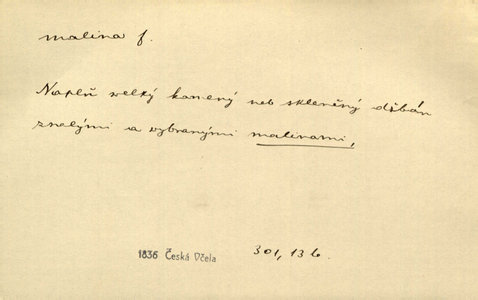 malina f.
Naplň velký kamený neb skleněný džbán
zralými a vybranými malinami,
1836 Česká Včela 301, 136.